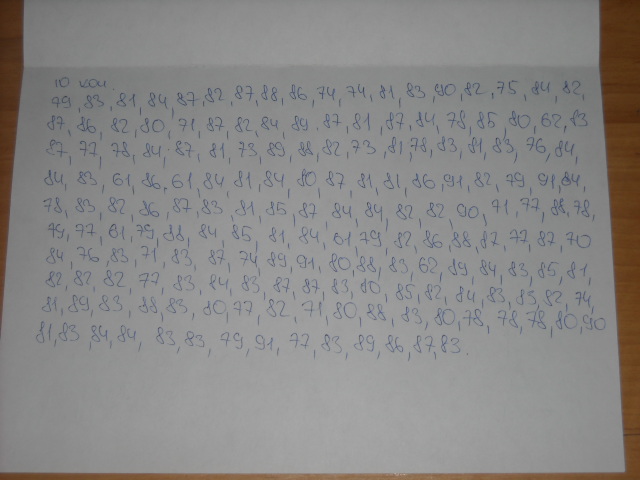 10 коп.
79, 83, 81, 84, 87, 82, 87, 88, 86, 74, 74, 81, 83, 90, 82, 75, 84, 82,
87, 86, 82, 80, 71, 87, 82, 84, 89, 87, 81, 87, 84, 78, 85, 80, 62, 83
87, 77, 78, 84, 87, 81, 73, 89, 88, 82, 73, 81, 78, 83, 81, 83, 76, 84,
84, 83, 61, 86, 61, 84, 81, 84, 80, 87, 81, 81, 86, 91, 82, 79, 91, 84,
78, 83, 82, 86, 87, 83, 81, 85, 87, 84, 84, 82, 82, 90, 71, 77, 88, 78,
79, 77, 81, 79, 88, 84, 85, 81, 84, 61, 79, 82, 86, 88, 87, 77, 87, 70
84, 76, 83, 71, 83, 87, 74, 89, 91, 80, 88, 83, 62, 89, 84, 83, 85, 81,
82, 82, 82, 77, 83, 84, 83, 87, 87, 83, 80, 85, 82, 84, 83, 83, 82, 74,
81, 89, 83, 88, 83, 80, 77, 82, 71, 80, 88, 83, 80, 78, 78, 78, 80, 90
81, 83, 84, 84, 83, 83, 79, 91, 77, 83, 89, 86, 87, 83.